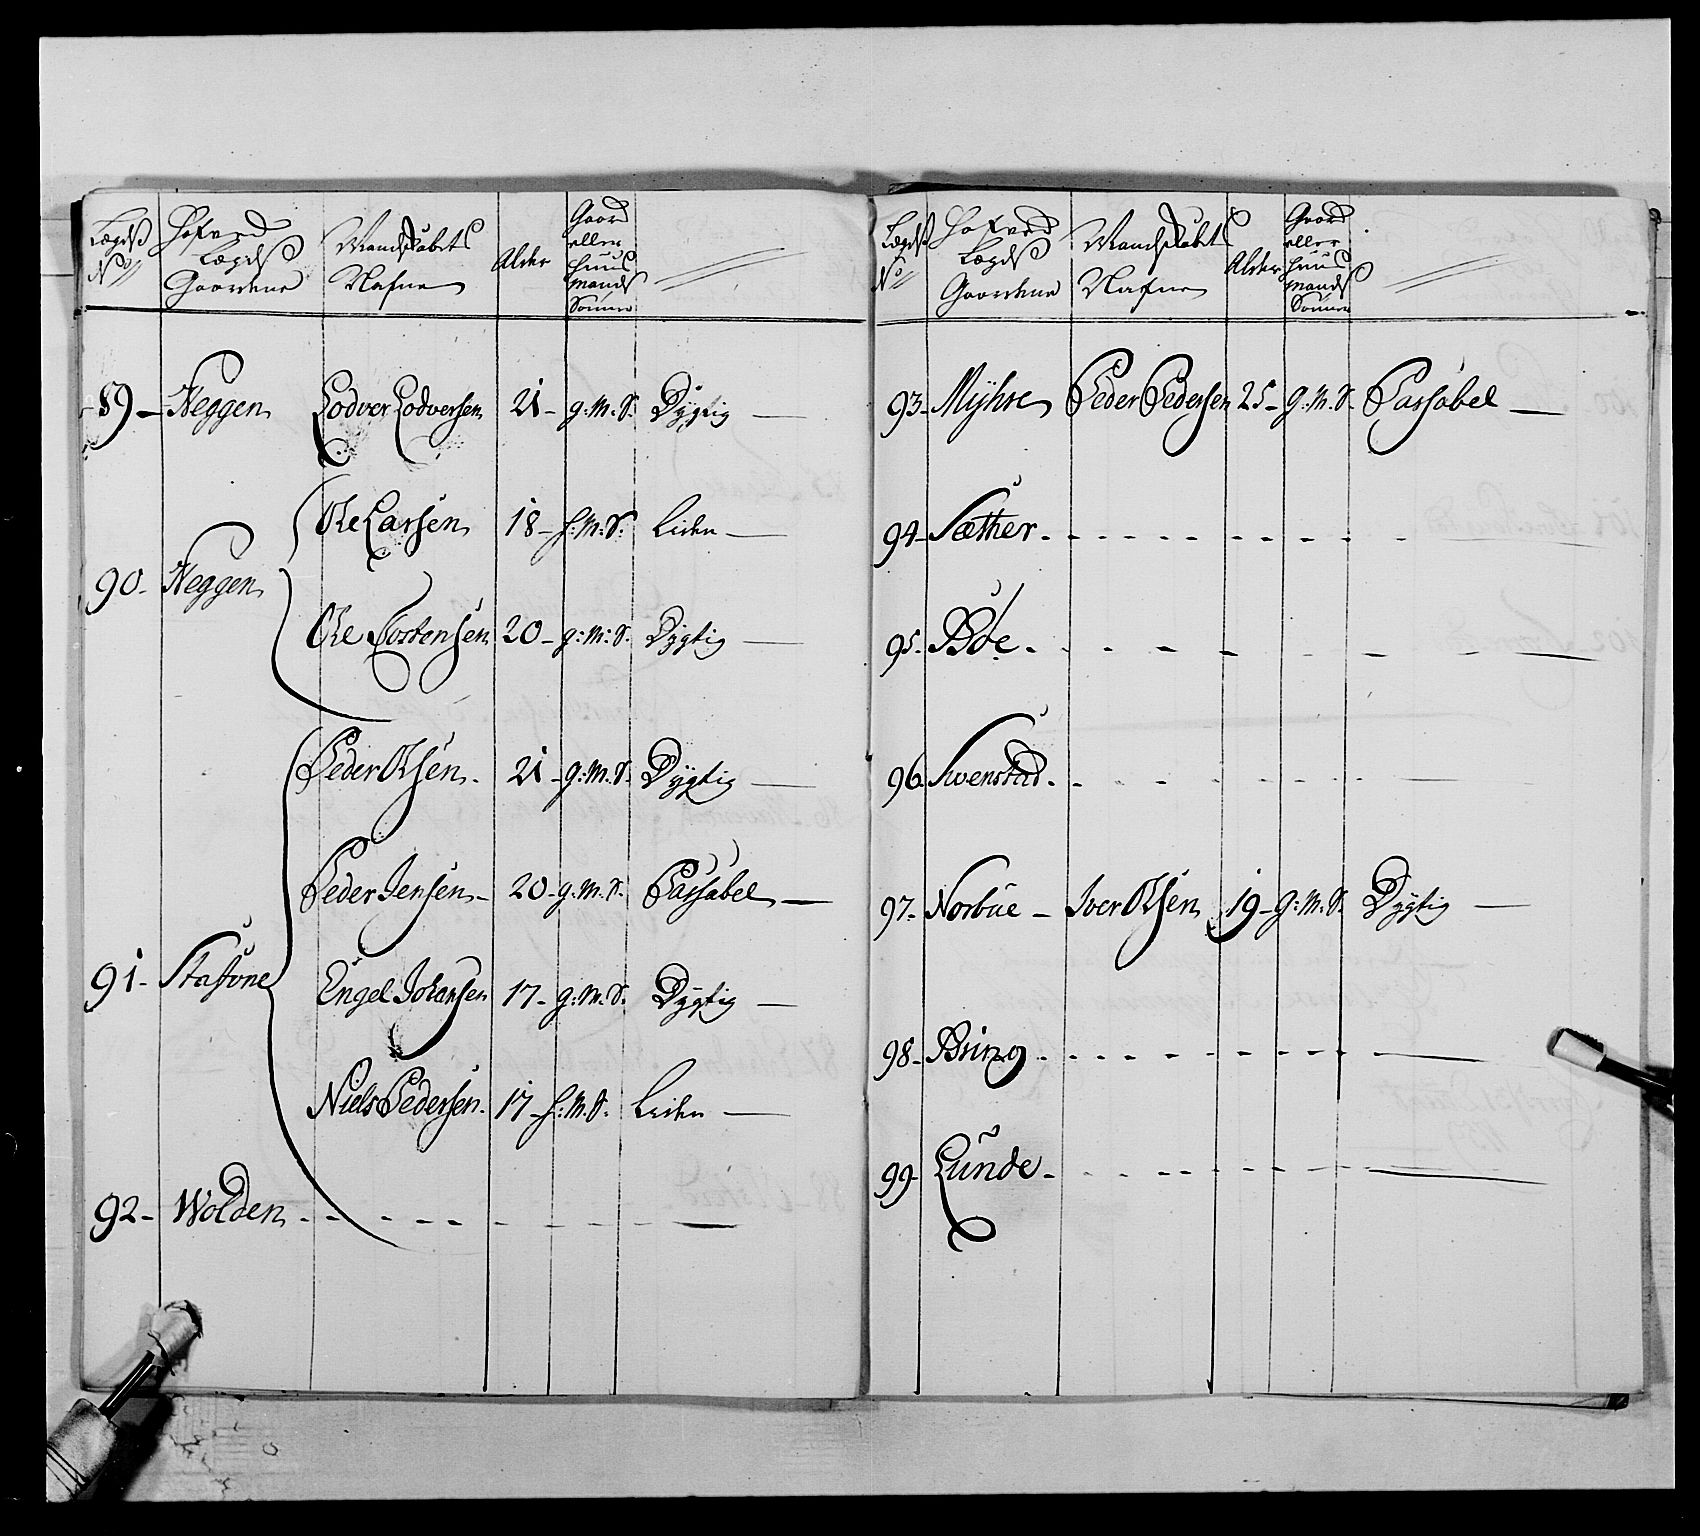 Lægdß No Hofved Lægdß Gaardene Mandskabets Nafne Alder Gaard eller Huusmands Sønner
89 – Heggen Lodver Lodversen 21 – g: M: S: Dÿgtig —
Ole Larsen 18 – H: M: S: Liden —
90 – Heggen
Ole Tostensen 20 – g: M: S: Dÿgtig —
Peder Olsen – 21 – g: M: S. Dÿgtig —
Peder Jensen – 20 – g: M: S. Passabel —
91 – Stafsvne
Engel Johansen 17 – g: M: S. Dÿgtig —
Niels Pedersen – 17 – H: M: S. Liden —
92 – Wolden – – – – – – – –
Lægdß No Hofved Lægdß Gaardene Mandskabets Nafne Alder Gaard eller Huusmands Sønner
93 – Mÿhre Peder Pedersen 25 – g: M: S. Passabel —
94 – Sæther – – – – – – – –
95 – Bøe – – – – – – – –
96 – Swenstad – – – – – – – –
97 – Norbüe – Iver Olsen 19 – g: M: S. Dÿgtig —
98 – Bring – – – – – – – –
99 – Lünde – – – – – – – –